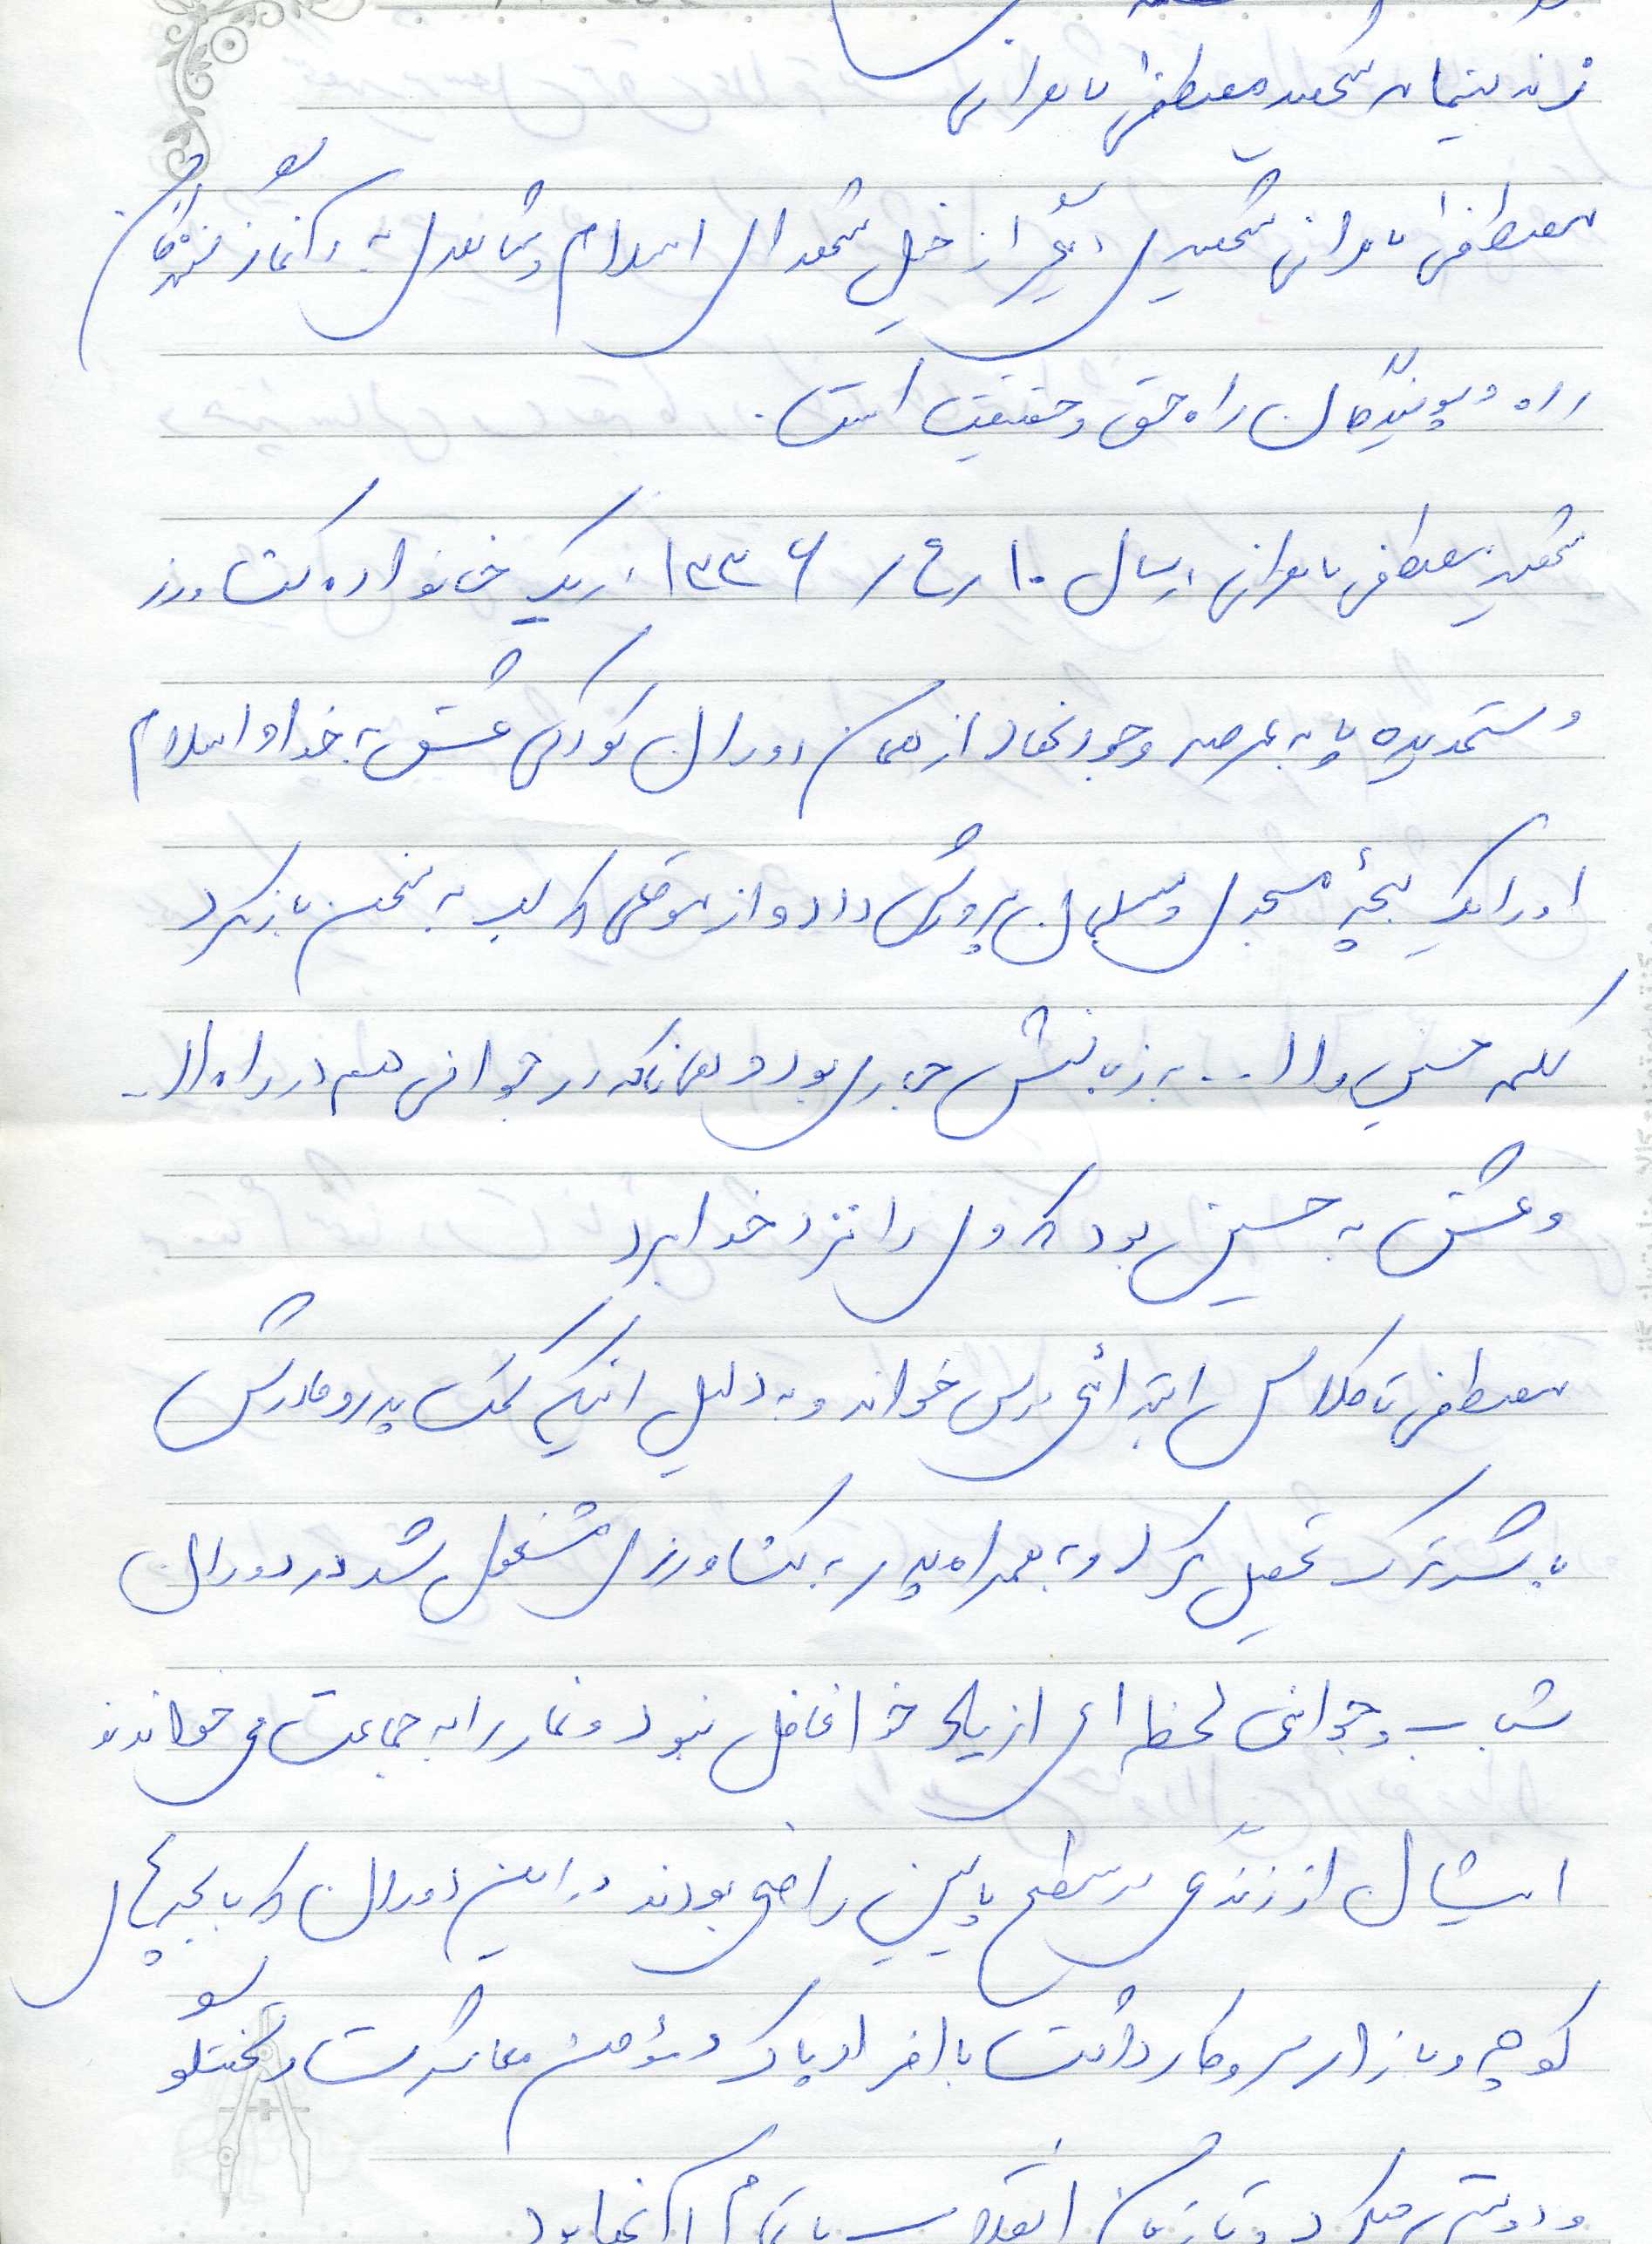 زندگینامه شهید مصطفی باورانی
مصطفی باورانی شهیدی دیگر از خیل شهدای اسلام و شاهدی به آغازگران
راه و پویندگان راه حق و حقیقت است.
شهید مصطفی باورانی در سال ۱۰ / ۴ / ۱۳۳۶ در یک خانواده کشاورز
و ستمدیده پا به عرصه وجود نهاد از همان دوران کودکی عشق به خدا و اسلام
او را یک بچه مسجدی و مسلمان پرورش داد و از موقعی که لب به سخن باز کرد
کلمه حسین و ا... به زبانش جاری بود و همانا که در جوانی هم در راه ا...
و عشق به حسین بود که وی را نزد خدا برد
مصطفی تا کلاس ابتدائی درس خواند و به دلیل اینکه کمک پدر و مادرش
باشد ترک تحصیل کرد و به همراه پدر به کشاورزی مشغول شد در دوران
شباب و جوانی لحظه ای از یاد خدا غافل نبود و نماز را به جماعت می خواندند
ایشان از زندگی در سطح پایین راضی بودند در این دوران که با بچه های
کوچه و بازار سر و کار داشت با افراد پاک و مؤمن معاشرت و گفتگو
و دوستی میکرد و تا زمان انقلاب با تمام آنها بود